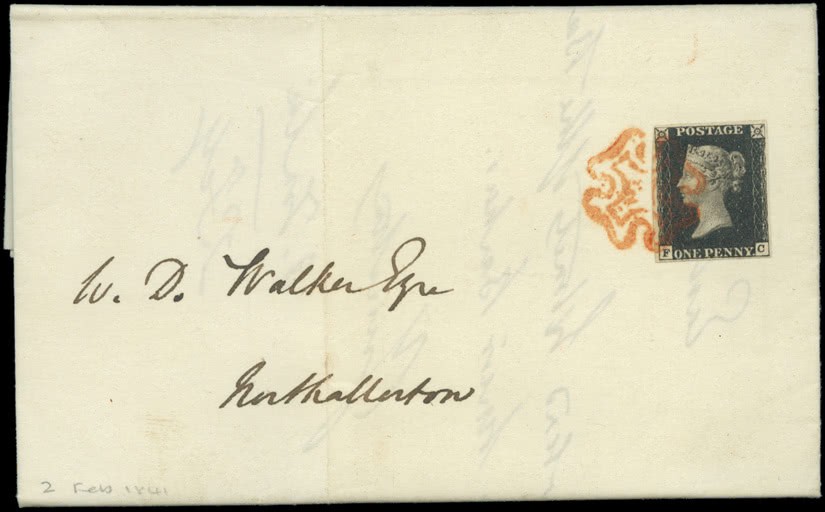 POSTAGE
F C
ONE PENNY
W. D. Walker Esqre
Northallerton
2 Feb 1841